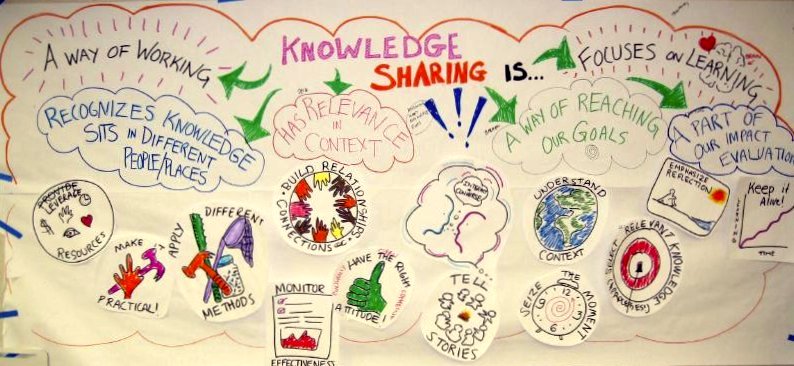 KNOWLEDGE
SHARING IS...
A WAY OF WORKING
FOCUSES ON LEARNING
RECOGNIZES KNOWLEDGE
SITS IN DIFFERENT
PEOPLE/PLACES
HAS RELEVANCE
IN
CONTEXT
!!!
A WAY OF REACHING
OUR GOALS
A PART OF
OUR IMPACT
EVALUATION
PROVIDE
LEVERAGE
RESOURCES
MAKE
PRACTICAL!
APPLY
DIFFERENT
METHODS
BUILD RELATIONSHIPS
CONNECTIONS
MONITOR
EFFECTIVENESS
HAVE THE RIGHT
ATTITUDE!
CONVERSE
TELL
STORIES
UNDERSTAND
CONTEXT
SEIZE THE MOMENT
12
3
6
9
SELECT RELEVANT KNOWLEDGE
EMPHASIZE
REFLECTION
Keep it
Alive!
TIME